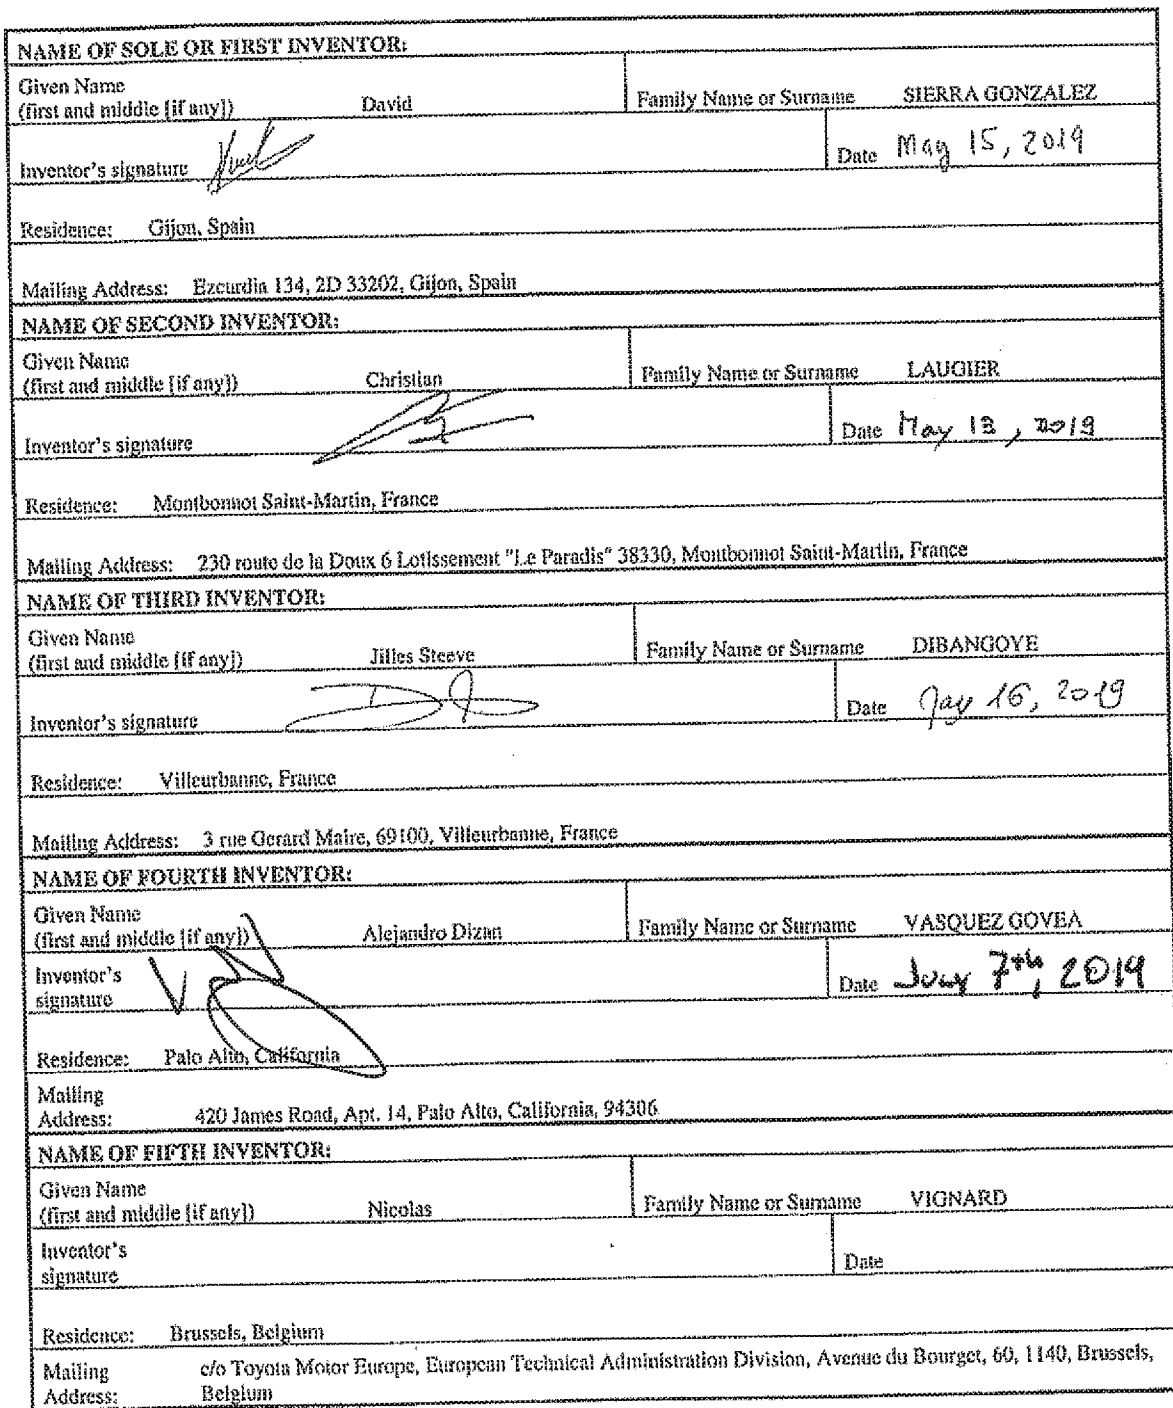 NAME OF SOLE OR FIRST INVENTOR:
Given Name
(first and middle [if any]) David Family Name or Surname SIERRA GONZALEZ
Inventor's signature Date May 15, 2019
Residence: Gijon, Spain
Mailing Address: Ezcurdia 134, 2D 33202, Gijon, Spain
NAME OF SECOND INVENTOR:
Given Name
(first and middle [if any]) Christian Family Name or Surname LAUGIER
Inventor's signature Date May 13, 2019
Residence: Montbonnot Saint-Martin, France
Mailing Address: 230 route de la Doux 6 Lotissement "Le Paradis" 38330, Montbonnot Saint-Martin, France
NAME OF THIRD INVENTOR:
Given Name
(first and middle [if any]) Jilles Steeve Family Name or Surname DIBANGOYE
Inventor's signature Date May 16, 2019
Residence: Villeurbanne, France
Mailing Address: 3 rue Gerard Maire, 69100, Villeurbanne, France
NAME OF FOURTH INVENTOR:
Given Name
(first and middle [if any]) Alejandro Dizan Family Name or Surname VASQUEZ GOVEA
Inventor's
signature Date 7th, 2019
Residence: Palo Alto, California
Mailing
Address: 420 James Road, Apt. 14, Palo Alto, California, 94306
NAME OF FIFTH INVENTOR:
Given Name
(first and middle [if any]) Nicolas Family Name or Surname VIGNARD
Inventor's
signature Date
Residence: Brussels, Belgium
Mailing c/o Toyota Motor Europe, European Technical Administration Division, Avenue du Bourget, 60, 1140, Brussels,
Address: Belgium